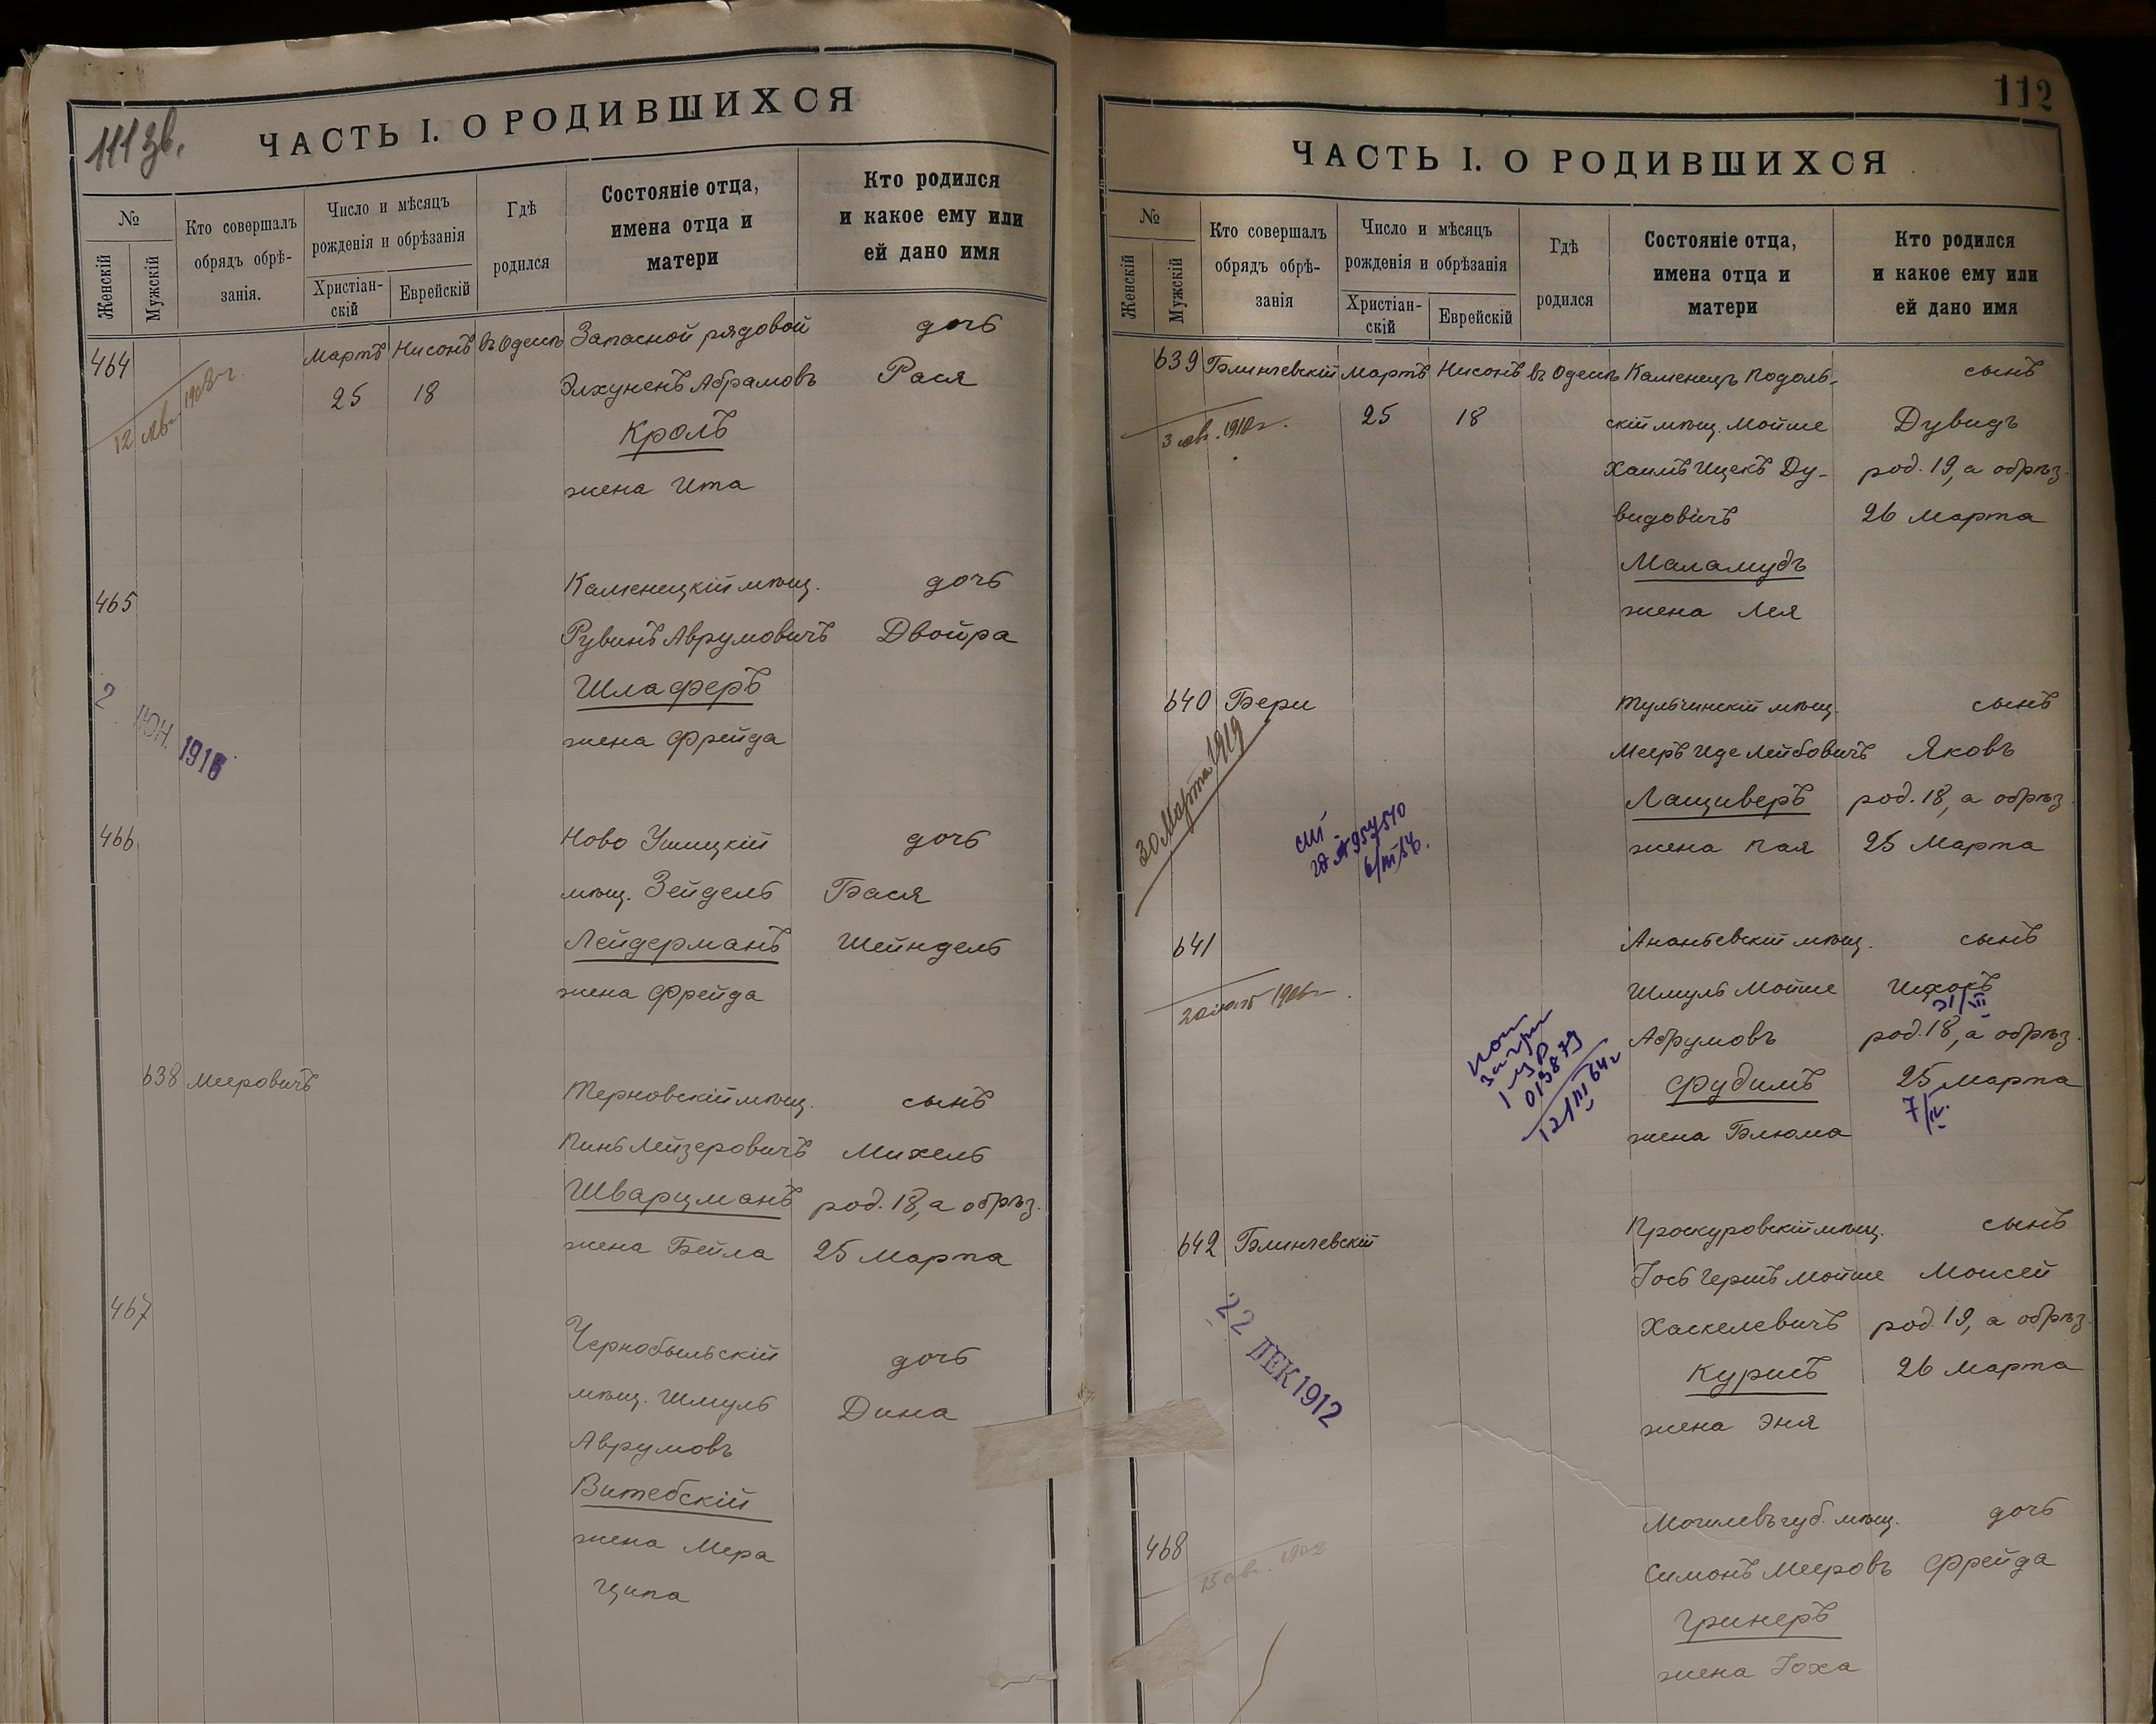 111 зв.
ЧАСТЬ I. О РОДИВШИХСЯ
№
Женскій
Мужскій
Кто совершалъ
обрядъ обрѣ-
занія.
Число и мѣсяцъ
рожденія и обрѣзанія
Христіан-
скій
Еврейскій
Гдѣ
родился
Состояніе отца,
имена отца и
матери
Кто родился
и какое ему или
ей дано имя
464
Мартъ Нисонъ въ Одессѣ Запасной рядовой дочь
25 18 Элхуненъ Абрамовъ Рася
Кроль
жена Ита
12 янв. 1908 г.
465 Каменецкій мѣщ. дочь
Рувинъ Аврумовичъ Двойра
Шлаферъ
жена Фрейда
2 ІЮН. 1916
466 Ново Ушицкій дочь
мѣщ. Зейдель Бася
Лейдерманъ Шейндель
жена Фрейда
638 Мееровичъ Терновскій мѣщ. сынъ
Пинь Лейзеровичъ Михель
Шварцманъ род. 18, а обрѣз.
жена Бейла 25 Марта
467 Чернобыльскій дочь
мѣщ. Шмуль Дина
Аврумовъ
Витебскій
жена Мера
Ципа
112
ЧАСТЬ I. О РОДИВШИХСЯ
№
Женскій
Мужскій
Кто совершалъ
обрядъ обрѣ-
занія
Число и мѣсяцъ
рожденія и обрѣзанія
Христіан-
скій
Еврейскій
Гдѣ
родился
Состояніе отца,
имена отца и
матери
Кто родился
и какое ему или
ей дано имя
639 Блинчевскій Мартъ Нисонъ въ Одессѣ Каменецъ Подоль- сынъ
25 18 скій мѣщ. Мойше Дувидъ
3 1910 г.
Хаимъ Ицекъ Ду- род. 19, а обрѣз.
видовичъ 26 Марта
Маламудъ
жена Лея
640 Бери Тульчинскій мѣщ. сынъ
Мееръ Иде Лейбовичъ Яковъ
Лащиверъ род. 18, а обрѣз.
жена Хая 25 Марта
30 Марта 1919
954510
6/III
641 Ананьевскій мѣщ. сынъ
Шмуль Мойше Ицхокъ
31/III
Абрумовъ род. 18, а обрѣз.
Фудимъ 25 Марта
7/IV.
жена Блюма
013879
12/III 64 г
642 Блинчевскій Проскуровскій мѣщ. сынъ
Іось Гершъ Мойше Моисей
Хаскелевичъ род. 19, а обрѣз.
Курисъ 26 Марта
жена Эня
22 ДЕК 1912
468 Могилевъ губ. мѣщ. дочь
Симонъ Мееровъ Фрейда
Гринеръ
жена Іоха